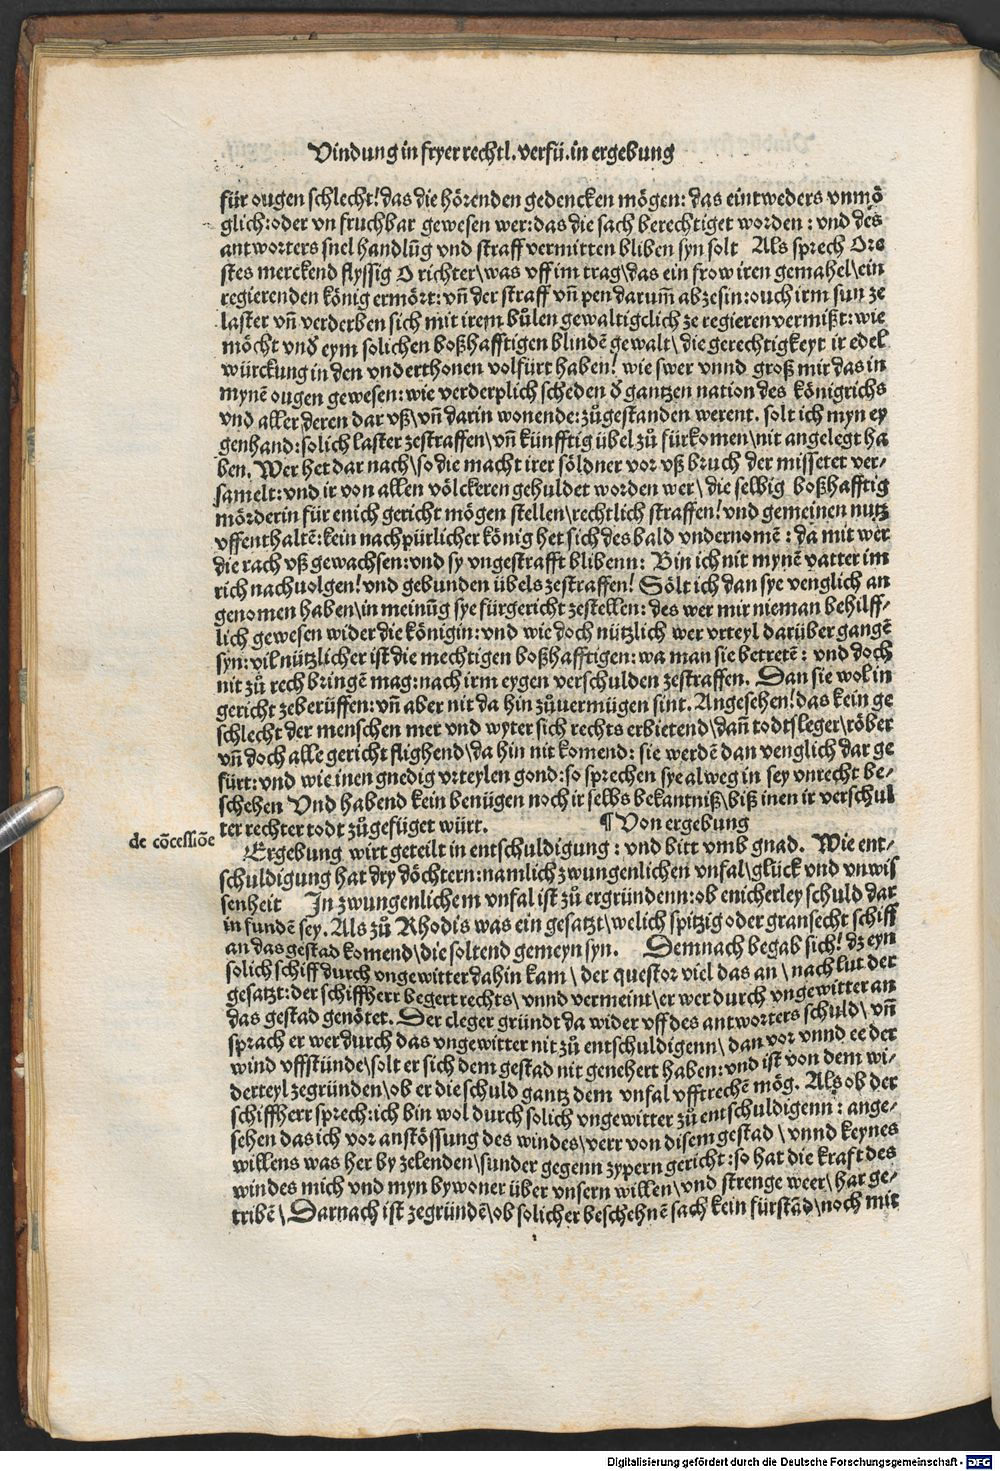 Vindung in fryer rechtl. verfü. in ergebung
für ougen schlecht! das die hörenden gedencken mögen: das eintweders vnmö
glich: oder vn fruchbar gewesen wer: das die sach berechtiget worden: vnd des
antworters snel handlūg vnd straff vermitten bliben syn solt Als sprech Ore
stes merckend flyssig O richter\ was vff im trag\ das ein frow iren gemahel\ ein
regierenden könig ermört: vn̄ der straff vn̄ pen darum̄ abzesin: ouch irm sun ze
laster vn̄ verderben sich mit irem bůlen gewaltigclich ze regieren vermißt: wie
möcht vnd̕ eym solichen boßhafftigen blindē gewalt\ die gerechtigkeyt ir edel
würckung in den vnderthonen volfürt haben! wie swer vnnd groß mir das in
mynē ougen gewesen: wie verderplich scheden d̕ gantzen nation des königrichs
vnd aller deren dar vß\ vn̄ darin wonende: zůgestanden werent. solt ich myn ey
genhand: solich laster zestraffen\ vn̄ künfftig übel zů fürkomen\ nit angelegt ha
ben. Wer het dar nach\ so die macht irer söldner vor vß bruch der missetet ver-
samelt: vnd ir von allen völckeren gehuldet worden wer\ die selbig boßhafftig
mörderin für enich gericht mögen stellen\ rechtlich straffen! vnd gemeinen nutz
vffenthaltē: kein nachpürlicher könig het sich des bald vndernomē: da mit wer
die rach vß gewachsen: vnd sy vngestrafft blibenn: Bin ich nit mynē vatter im
rich nachuolgen! vnd gebunden übels zestraffen! Sölt ich dan sye venglich an
genomen haben\ in meinūg sye für gericht zestellen: des wer mir nieman behilff-
lich gewesen wider die königin: vnd wie doch nützlich wer vrteyl darüber gangē
syn: vil nützlicher ist die mechtigen boßhafftigen: wa man sie betretē: vnd doch
nit zů rech bringē mag: nach irm eygen verschulden zestraffen. Dan sie wol in
gericht zeberüffen: vn̄ aber nit da hin zůuermügen sint. Angesehen! das kein ge
schlecht der menschen mer vnd wyter sich rechts erbietend\ dan̄ todtsleger\ röber
vn̄ doch alle gericht flighend\ da hin nit komend: sie werdē dan venglich dar ge
fürt: vnd wie inen gnedig vrteylen gond: so sprechen sye alweg in sey vnrecht be-
schehen Vnd habend kein benügen noch ir selbs bekantniß\ biß inen ir verschul
ter rechter todt zůgefüget würt. ¶ Von ergebung
de cōcessiōe
Ergebung wirt geteilt in entschuldigung: vnd bitt vmb gnad. Wie ent-
schuldigung hat dry döchtern: namlich zwungenlichen vnfal\ glück vnd vnwis
senheit In zwungenlichem vnfal ist zů ergründenn: ob enicherley schuld dar
in fundē sey. Als zů Rhodis was ein gesatzt\ welich spitzig oder gransecht schiff
an das gestad komend\ die soltend gemeyn syn. Demnach begab sich! dz eyn
solich schiff durch vngewitter dahin kam\ der questor viel das an\ nach lut der
gesatzt: der schiffherr begert rechts\ vnnd vermeint\ er wer durch vngewitter an
das gestad genötet. Der cleger gründt da wider vff des antworters schuld\ vn̄
sprach er wer durch das vngewitter nit zů entschuldigenn\ dan vor vnnd ee der
wind vffstünde\ solt er sich dem gestad nit genehert haben: vnd ist von dem wi-
derteyl zegründen\ ob er die schuld gantz dem vnfal vfftrechē mög. Als ob der
schiffherr sprech: ich bin wol durch solich vngewitter zů entschuldigenn: ange-
sehen das ich vor anstössung des windes\ verr von disem gestad\ vnnd keynes
willens was her by zelenden\ sunder gegenn zypern gericht: so hat die kraft des
windes mich vnd myn bywoner über vnsern willen\ vnd strenge weer\ har ge-
tribē\ Darnach ist zegründē\ ob solicher beschehnē sach kein fürstād\ noch mit
Digitalisierung gefördert durch die Deutsche Forschungsgemeinschaft - DFG